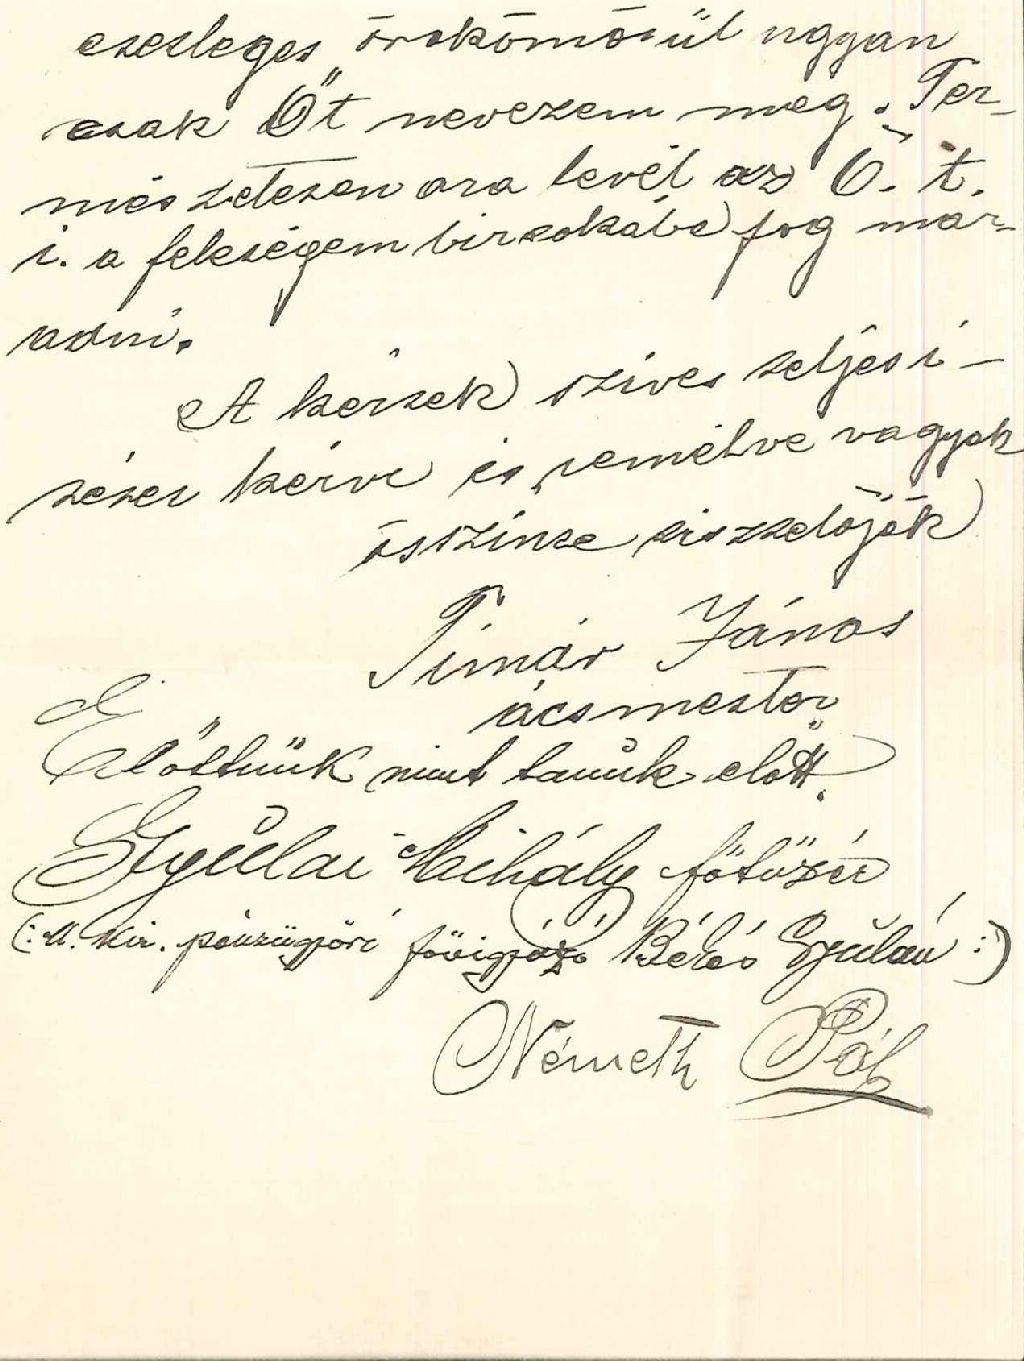 esetleges örökömösül ugyan
csak Őt nevezem meg. Ter-
mészetesen ara levél az Ő. t.
i. a feleségem birtokába fog mar-
adni.
A kérsek szives teljesi-
tését kérve és remélve vagyok
őszinte tisztelőjök
Timár János
ácsmester
Előttünk mint tanúk előtt.
Gyulai Mihály főtűzér
(: M. kir. pénzügyőri fővigyázó Gyulán :)
Németh Pál